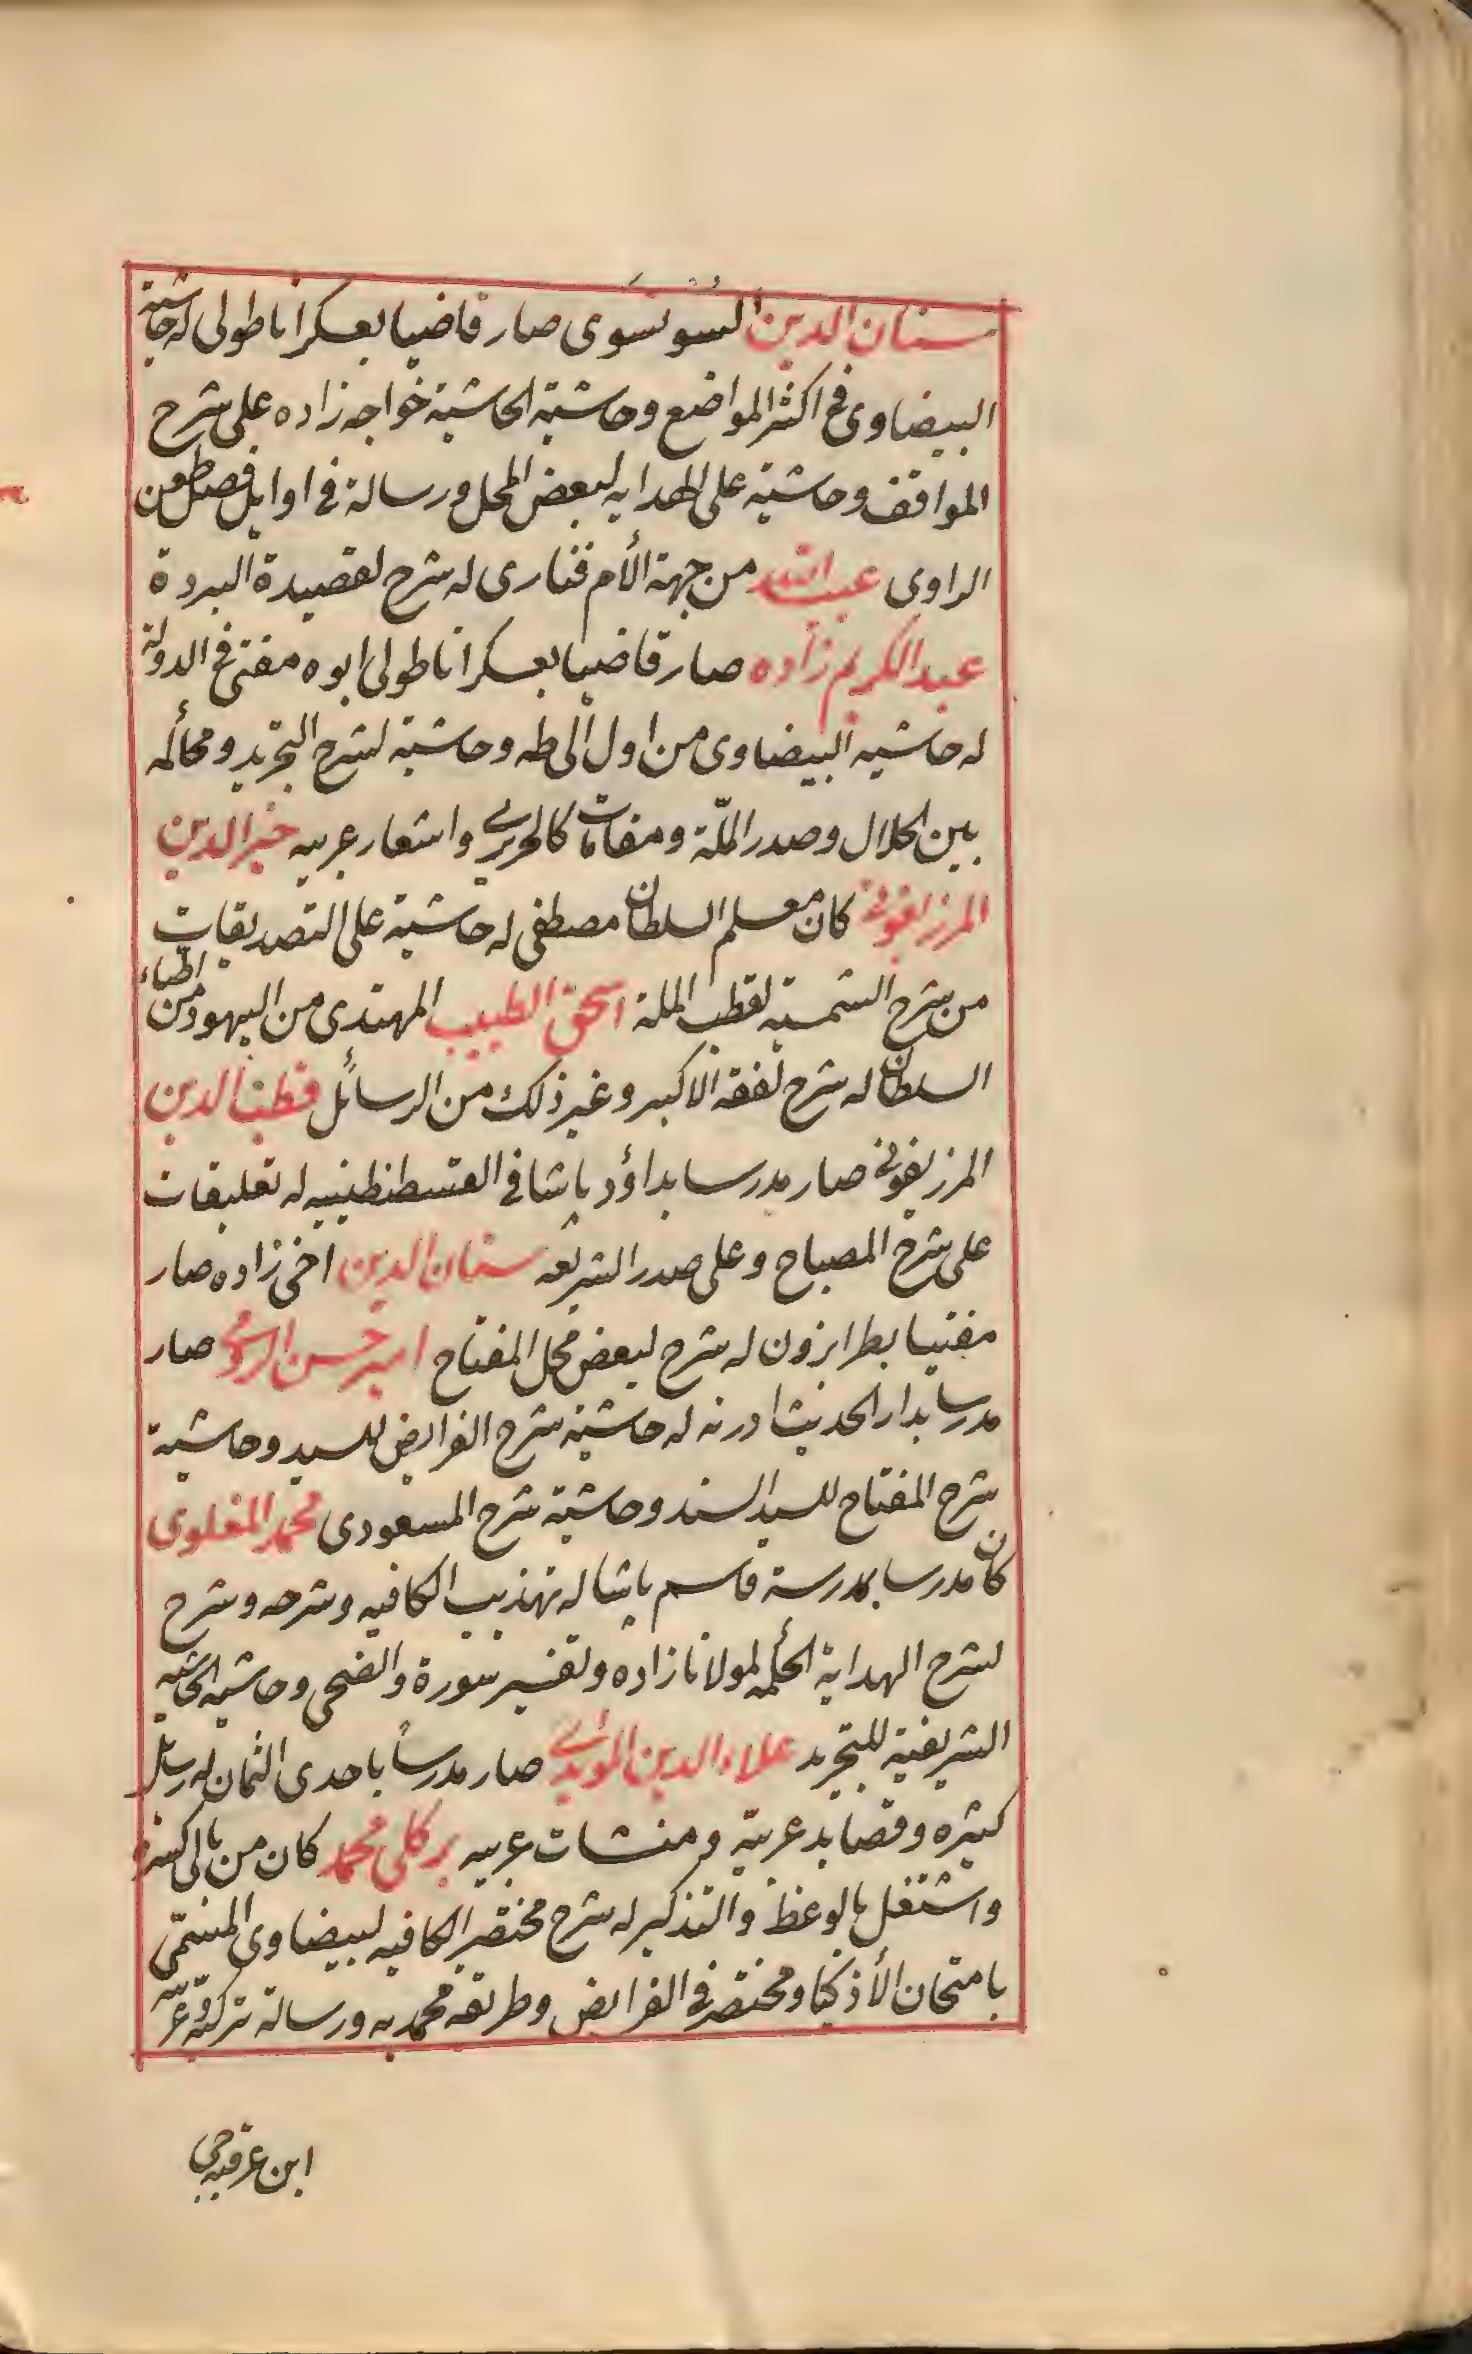 سنان الدين السونسوى صار قاضيا بعسكر اناطولى له حاشية
البيضاوى فى اكثر المواضع وحاشية الحاشية خواجه زاده على شرح
المواقف وحاشية على الهدايه لبعض المحل ورسالة فى اوايل فصل طعن
الراوى عبد الله من جهة الأم فنارى له شرح لقصيدة البردة
عبد الكريم زاده صار قاضيا بعسكر اناطولى ابوه مفتى فى الدولة
له حاشيه البيضاوى من اول الى طه وحاشية لشرح التجريد ومحاكمه
بين الجلال وصدر الملّة ومقامات كالحريرى واشعار عربيه خير الدين
المرزيفونى كان معلم السلطان مصطفى له حاشية على التصديقات
من شرح الشمسيه لقطب الملة اسحق الطبيب المهتدى من اليهود من اطباء
السلطان له شرح لفقه الاكبر وغير ذلك من الرسائل قطب الدين
المرزيفونى صار مدرسا بداؤد باشا فى القسطنطينيه له تعليقات
على شرح المصباح وعلى صدر الشريعه سنان الدين اخى زاده صار
مفتيا بطرابزون له شرح لبعض محل المفتاح امير حسن الرومى صار
مدرسا بدار الحديث ادرنه له حاشية شرح الفرايض للسيد وحاشية
شرح المفتاح للسيد السند وحاشية شرح المسعودى محمد المغلوى
كان مدرسا بمدرسة قاسم باشا له تهذيب الكافيه وشرحه وشرح
لشرح الهداية الحكميه لمولانا زاده وتفسير سورة والضحى وحاشيه الحاشيه
الشريفية للتجريد علاء الدين المويدى صار مدرساً باحدى الثمان له رسايل
كثيره وقصايد عربيّة ومنشات عربيه بركلى محمد كان من بالى كسره
واشتغل بالوعظ والتذكير له شرح مختصر الكافيه لبيضاوى المسمّى
بامتحان الأذكيا ومختصر فى الفرايض وطريقه محمديه ورسالة تركيّه وعربيّه
ابن عرقيه جى